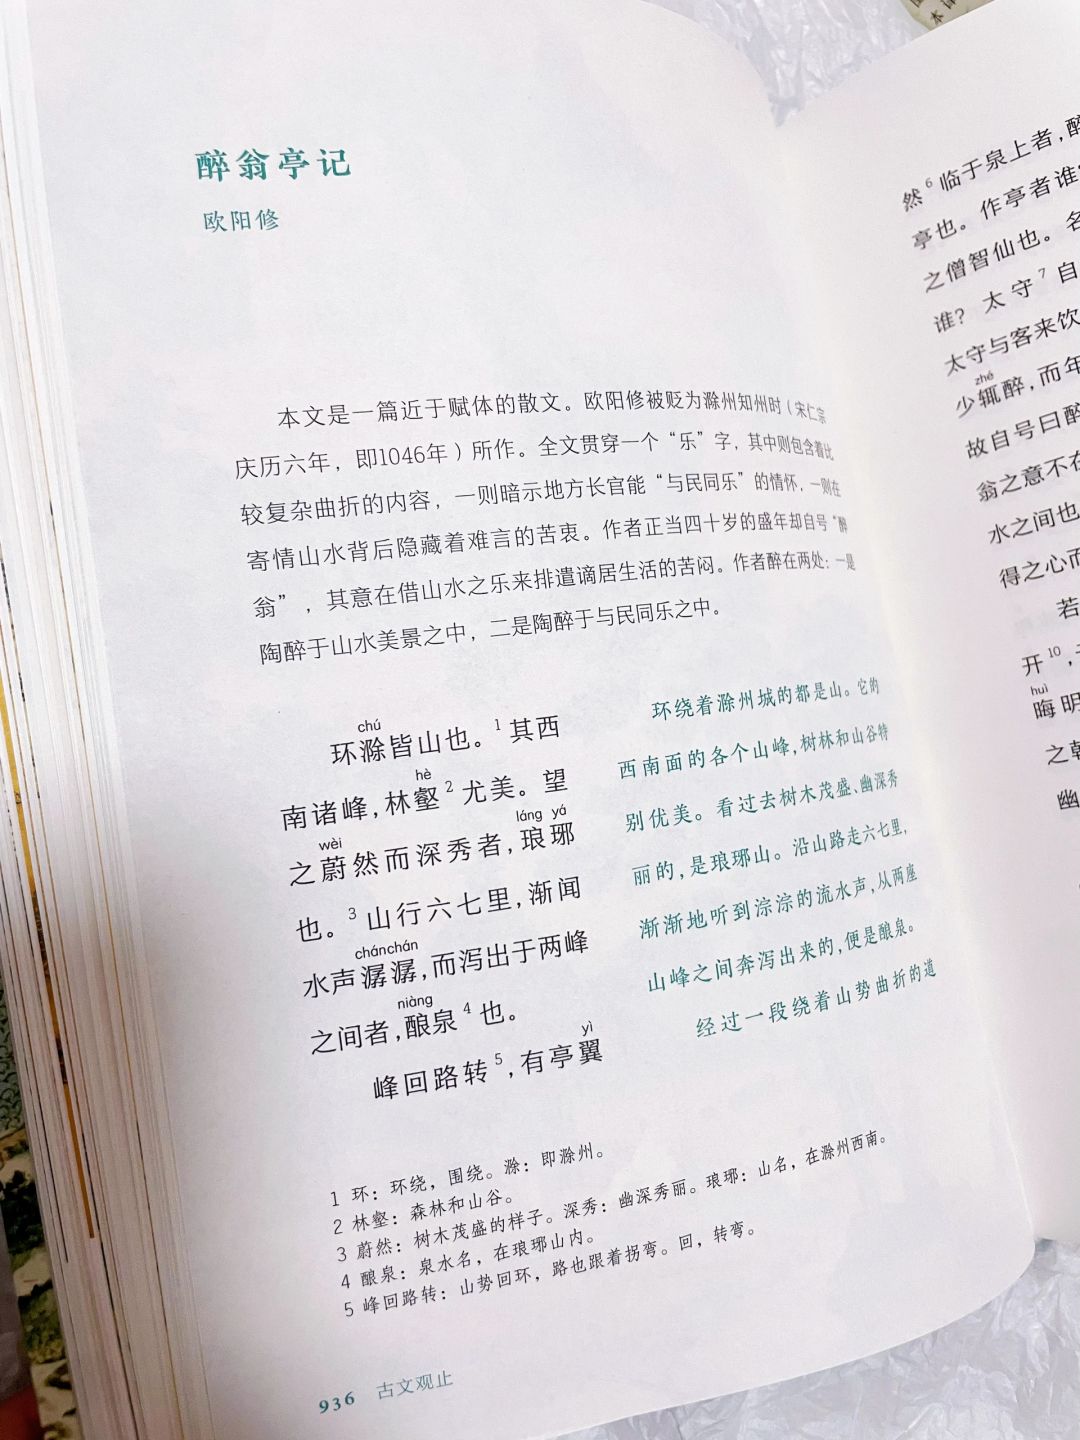 醉翁亭记
欧阳修
本文是一篇近于赋体的散文。欧阳修被贬为滁州知州时（宋仁宗
庆历六年，即1046年）所作。全文贯穿一个“乐”字，其中则包含着比
较复杂曲折的内容，一则暗示地方长官能“与民同乐”的情怀，一则在
寄情山水背后隐藏着难言的苦衷。作者正当四十岁的盛年却自号“醉
翁”，其意在借山水之乐来排遣谪居生活的苦闷。作者醉在两处：一是
陶醉于山水美景之中，二是陶醉于与民同乐之中。
chú
环滁皆山也。1其西
hè
南诸峰，林壑2尤美。望
wèi láng yá
之蔚然而深秀者，琅琊
也。3山行六七里，渐闻
chánchán
水声潺潺，而泻出于两峰
niàng
之间者，酿泉4也。
yì
峰回路转5，有亭翼
环绕着滁州城的都是山。它的
西南面的各个山峰，树林和山谷特
别优美。看过去树木茂盛、幽深秀
丽的，是琅琊山。沿山路走六七里，
渐渐地听到淙淙的流水声，从两座
山峰之间奔泻出来的，便是酿泉。
经过一段绕着山势曲折的道
1 环：环绕，围绕。滁：即滁州。
2 林壑：森林和山谷。
3 蔚然：树木茂盛的样子。深秀：幽深秀丽。琅琊：山名，在滁州西南。
4 酿泉：泉水名，在琅琊山内。
5 峰回路转：山势回环，路也跟着拐弯。回，转弯。
936 古文观止
然6临于泉上者，醉
亭也。作亭者谁
之僧智仙也。名
谁？太守7自
太守与客来饮
zhé
少辄醉，而年
故自号曰醉
翁之意不在
水之间也
得之心而
若
开10，
huì
晦明
之朝
幽